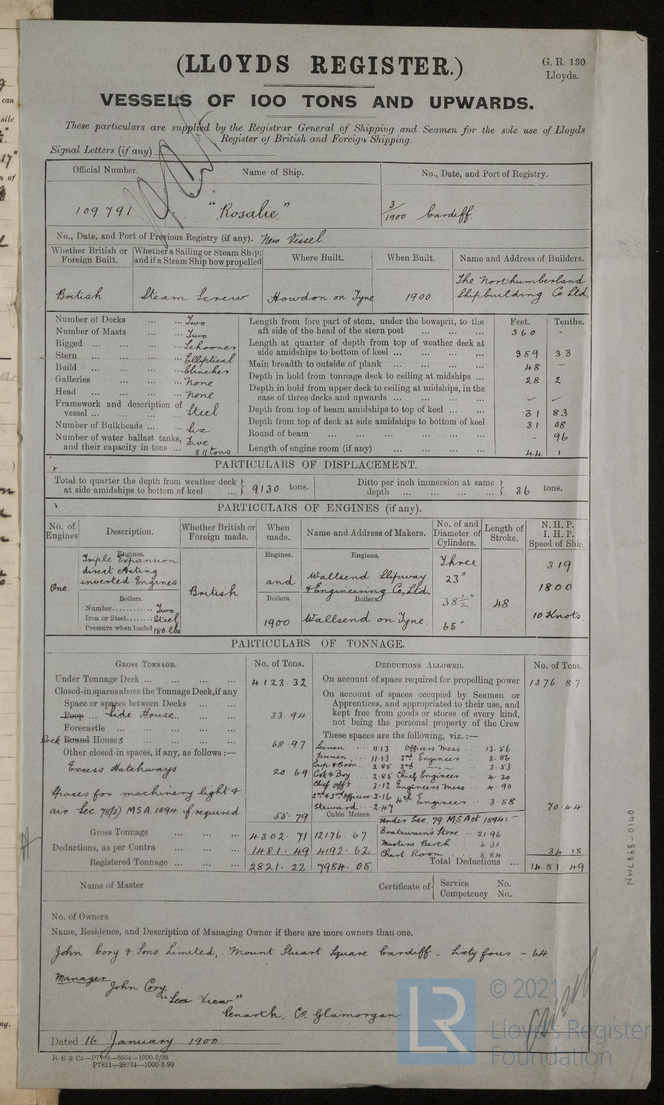 (LLOYDS REGISTER.)
G. R. 130
Lloyds.
VESSELS OF 100 TONS AND UPWARDS.
These particulars are supplied by the Registrar General of Shipping and Seamen for the sole use of Lloyds
Register of British and Foreign Shipping.
Signal Letters (if any)
Official Number. Name of Ship. No., Date, and Port of Registry.
109791 "Rosalie" 3/1900 Cardiff.
No., Date, and Port of Previous Registry (if any). New Vessel
Whether British or Foreign Built. Whether a Sailing or Steam Ship; and if a Steam Ship how propelled Where Built. When Built. Name and Address of Builders.
British Steam Screw Howdon on Tyne 1900 The Northumberland Shipbuilding Co Ltd.
Number of Decks ... ... Two
Number of Masts ... ... Two
Rigged ... ... Schooner
Stern ... ... Elliptical
Build ... ... Clincher
Galleries ... ... None
Head ... ... None
Framework and description of vessel ... ... Steel
Number of Bulkheads ... Six
Number of water ballast tanks, and their capacity in tons ... Five 811 tons
Feet. Tenths.
Length from fore part of stem, under the bowsprit, to the aft side of the head of the stern post ... 360 -
Length at quarter of depth from top of weather deck at side amidships to bottom of keel ... 359 33
Main breadth to outside of plank ... 48 -
Depth in hold from tonnage deck to ceiling at midships ... 28 2
Depth in hold from upper deck to ceiling at midships, in the case of three decks and upwards ...
Depth from top of beam amidships to top of keel ... 31 83
Depth from top of deck at side amidships to bottom of keel 31 08
Round of beam ... - 96
Length of engine room (if any) ... 44 1
PARTICULARS OF DISPLACEMENT.
Total to quarter the depth from weather deck at side amidships to bottom of keel ... 9130 tons. Ditto per inch immersion at same depth ... 36 tons.
PARTICULARS OF ENGINES (if any).
No. of Engines Description. Whether British or Foreign made. When made. Name and Address of Makers. No. of and Diameter of Cylinders. Length of Stroke. N. H. P. I. H. P. Speed of Ship.
Engines. Engines. Engines.
One Triple Expansion direct acting inverted Engines British and Wallsend Slipway & Engineering Co, Ltd. Three 23" 38½" 65" 48 319 1800 10 Knots
Boilers. Boilers. Boilers.
Number ... Two
Iron or Steel ... Steel
Pressure when loaded 180 lbs
1900 Wallsend on Tyne.
PARTICULARS OF TONNAGE.
GROSS TONNAGE. No. of Tons. DEDUCTIONS ALLOWED. No. of Tons.
Under Tonnage Deck ... 4123 32
Closed-in spaces above the Tonnage Deck, if any
Space or spaces between Decks ...
Poop ... Side House ... 33.94
Forecastle ...
Deck Round Houses 68.97
Other closed-in spaces, if any, as follows:—
Excess Hatchways 20 69
Spaces for machinery light & air Sec 78(2) M.S.A. 1894 if required 55.79
Gross Tonnage ... 4302.71 12176.67
Deductions, as per Contra ... 1481.49 4192.62
Registered Tonnage ... 2821.22 7984.05
On account of space required for propelling power 1376.87
On account of spaces occupied by Seamen or Apprentices, and appropriated to their use, and kept free from goods or stores of every kind, not being the personal property of the Crew
These spaces are the following, viz.:—
Seamen 11.13 Officers Mess 13.56
Firemen 11.13 2nd Engineer 3.86
2.85 3rd 3.53
Cook & Boy 2.85 Chief Engineer 4.30
Chief Offr. 3.12 Engineers Mess 4.90
2nd & 3rd Officers 3.16 4th Engineer 3.58
Steward 2.47
70.44
Cubic Metres. Under Sec. 79. M.S. Act 1894:-
Boatswain's Store 21.96
Masters Berth 6 35
Chart Room 5.84
34 18
Total Deductions ... 1481 49
Name of Master Certificate of Service No. Competency No.
No. of Owners
Name, Residence, and Description of Managing Owner if there are more owners than one.
John Cory & Sons Limited, Mount Stuart Square Cardiff - Sixty four - 64
Manager John Cory,
"Sea View"
Penarth, Co. Glamorgan.
Dated 16 January 1900
P7811—28774—1000-3-99
NM7868-0140
LR
© 2021
Lloyd's Register
Foundation